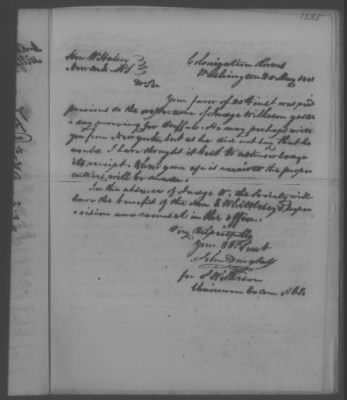 1285
Hon Wm Halsey Colonization Rooms
Newark N.J. Washington 28 May
Dr Sir
Your favor of 20th inst was recd
previous to the departure of Judge Wilkeson yester
day morning for Buffalo. He may perhaps write
you from New York, but as he did not say that he
would I have thought it best to acknowledge
its receipt. When your is received the proper
entries will be made.
In the absence of Judge W. the Society will
have the benefit of the Hon E Whittlesey's super
vision and counsel in this office.
Very Respectfully
Your Obt Servt
John Douglass
for S Wilkeson
Chairman Ex Com